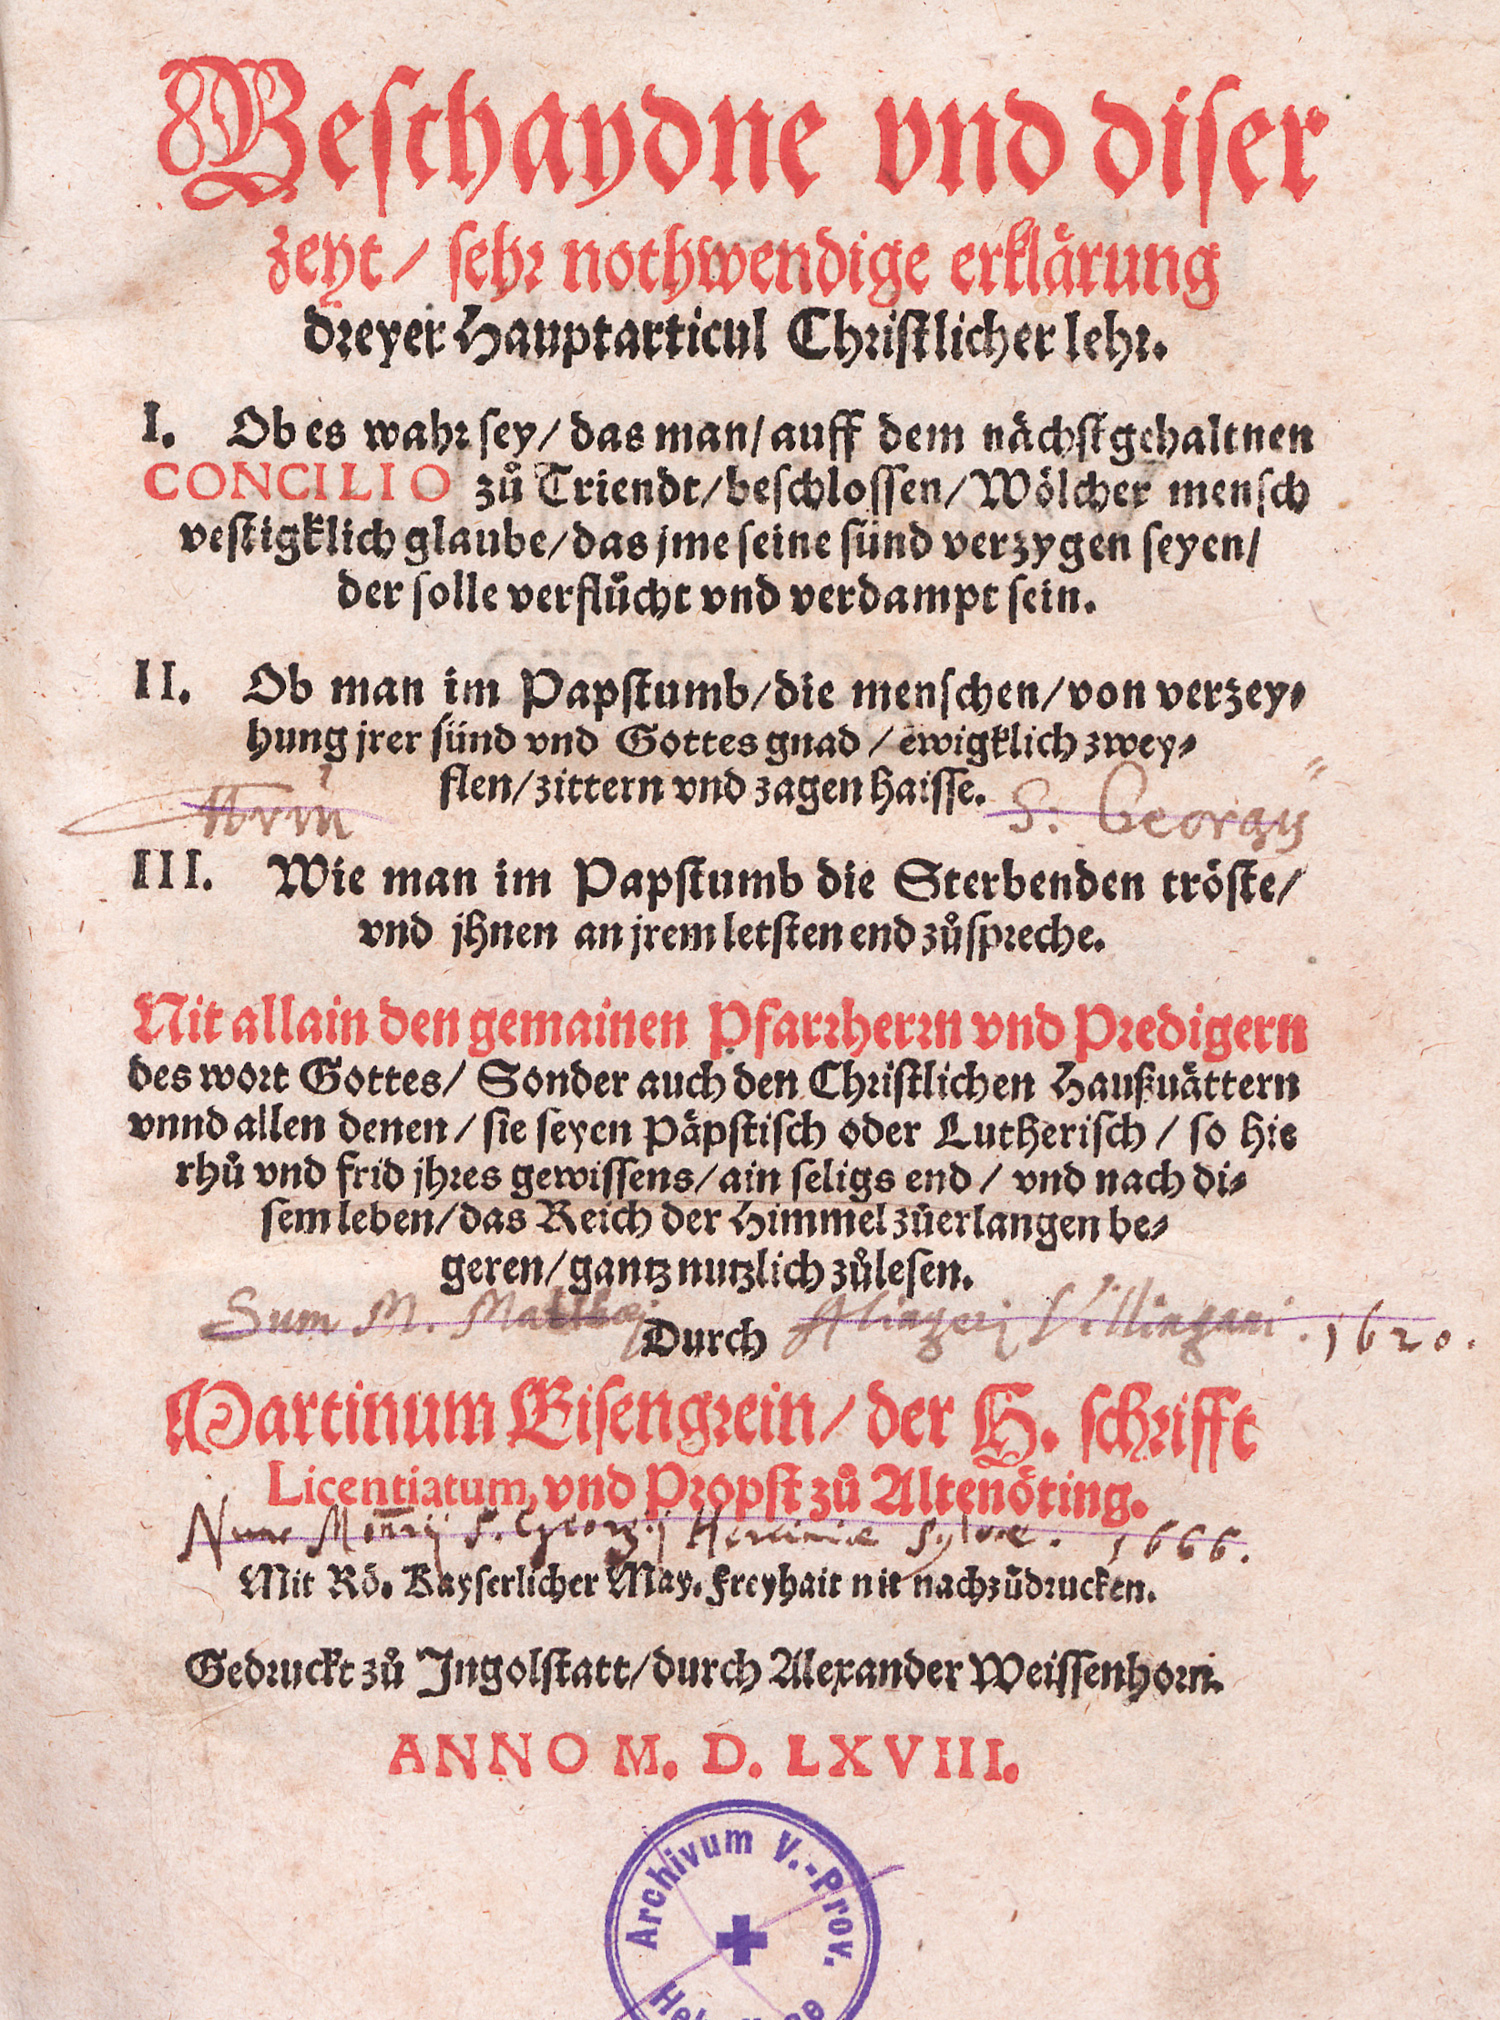 Beschaydne vnd diser
zeyt / sehr nothwendige erklärung
dreyer Hauptarticul Christlicher lehr.
I. Ob es wahr sey / das man / auff dem nächstgehaltnen
CONCILIO zů Triendt / beschlossen / Wölcher mensch
vestigklich glaube / das jme seine sünd verzygen seyen /
der solle verflůcht vnd verdampt sein.
II. Ob man im Papstumb / die menschen / von verzey⸗
hung jrer sünd vnd Gottes gnad / ewigklich zwey⸗
flen / zittern vnd zagen haisse.
S. Georgij
III. Wie man im Papstumb die Sterbenden tröste /
vnd jhnen an jrem letsten end zůspreche.
Nit allain den gemainen Pfarrherrn vnd Predigern
des wort Gottes / Sonder auch den Christlichen Haußuättern
vnnd allen denen / sie seyen Päpstisch oder Lutherisch / so hie
rhů vnd frid jhres gewissens / ain seligs end / vnd nach di⸗
sem leben / das Reich der Himmel zůerlangen be⸗
geren / gantz nutzlich zůlesen.
Sum M. Matthaej Villingani. 1620.
Durch
Martinum Eisengrein / der H. schrifft
Licentiatum, vnd Propst zů Altenöting.
Nunc Mon̄rij S. Georgij Hercinie Sylvae. 1666.
Mit Rö. Kayserlicher May. freyhait nit nachzůdrucken.
Gedruckt zů Ingolstatt / durch Alexander Weissenhorn.
ANNO M. D. LXVIII.
Archivum V.-Prov.